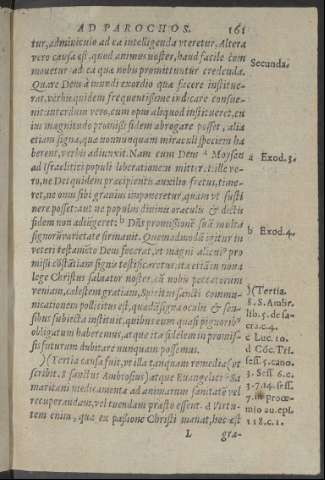 AD PAROCHOS. 161
tur, adminiculo ad ea intelligenda vteretur. Altera
vero causa est, quod animus noster, haud facile com
mouetur ad ea quæ nobis promittuntur credenda.
Quare Deus à mundi exordio quæ facere instituerat,
verbis quidem frequentissime indicare consueuit:
interdum vero, cum opus aliquod institueret, cu
ius magnitudo promissi fidem abrogare posset, alia
etiam signa, quæ nonnunquam miraculi speciem ha
berent, verbis adiunxit. Nam cum Deus a Moysen
ad Israelitici populi liberationem mitteret, ille ve-
ro, ne Dei quidem præcipientis auxilio fretus, time-
ret, ne onus sibi grauius imponeretur, quam vt susti
nere posset: aut ne populus diuinis oraculis & dictis
fidem non adiungeret: b Dñs promissionē suā multa
signorū varietate firmauit. Quemadmodū igitur in
veteri testamēto Deus fecerat, vt magni alicuiᵒ pro
missi cōstātiam signis testificaretur: ita etiā in noua
lege Christus saluator noster, cū nobis peccatorum
veniam, cælestem gratiam, Spiritus sancti commu-
nicationem pollicitus est, quædā signa oculis & sen-
sibus subiecta instituit, quibus eum quasi pignoribᵒ
obligatum haberemus, atque ita fidelem in promis-
sis futurum dubitare nunquam possemus.
)(Tertia causa fuit, vt illa tanquam remedia (vt
scribit sanctus Ambrosius) atque Euangelici Sa
maritani medicamenta ad animarum sanitatē vel
recuperandam, vel tuendam præsto essent. d Virtu-
tem enim, quæ ex passione Christi manat, hoc est
L gra-
Secunda.
a Exod. 3.
b Exod. 4.
)(Tertia.
S. Ambr.
lib. 5. de sa
cra. c. 4.
c Luc. 10.
d Cōc. Tri.
sess.